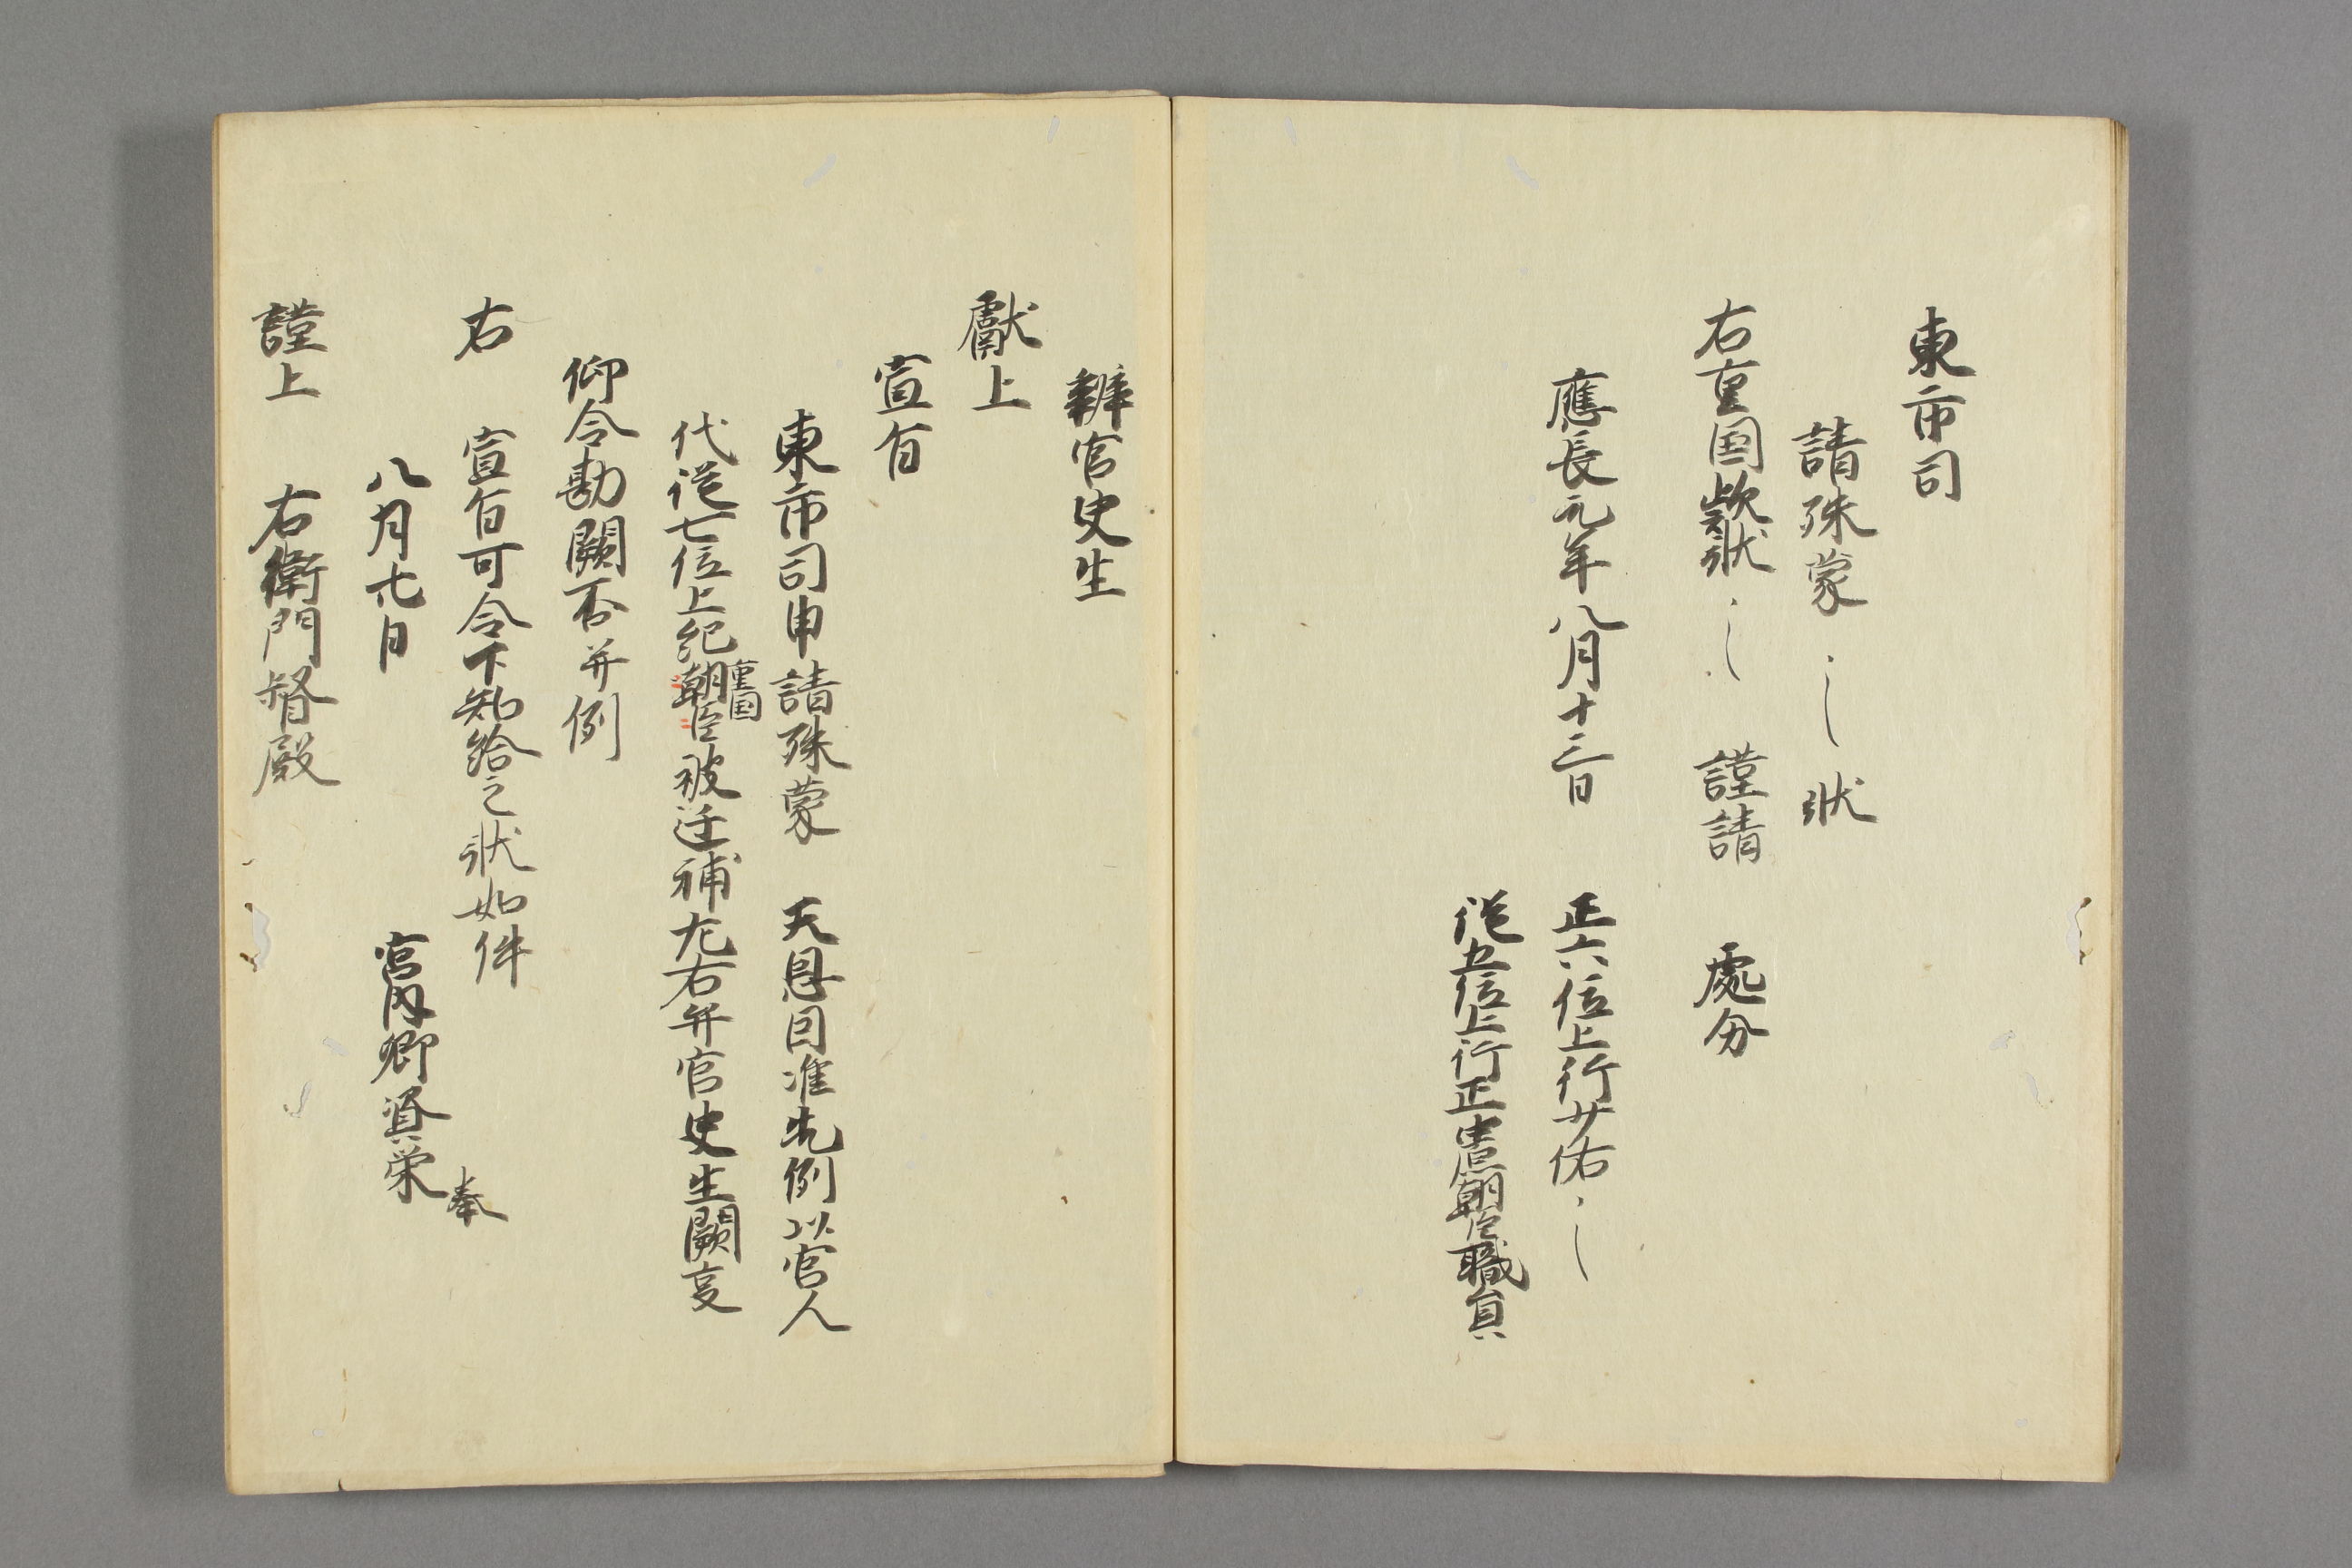 東市司
請殊蒙〻〻状
右重国款状〻〻謹請　處分
應長元年八月十三日　正六位上行少佑〻〻
従五位上行正中原朝臣職員
辨官史生
獻上
宣旨
東市司申請殊蒙　天恩因准先例以官人
代従七位上紀朝臣重国被迁補左右弁官史生闕㕝
仰令勘闕否并例
右　宣旨可令下知給之状如件
八月廿日　宮内卿資栄奉
謹上　右衛門督殿